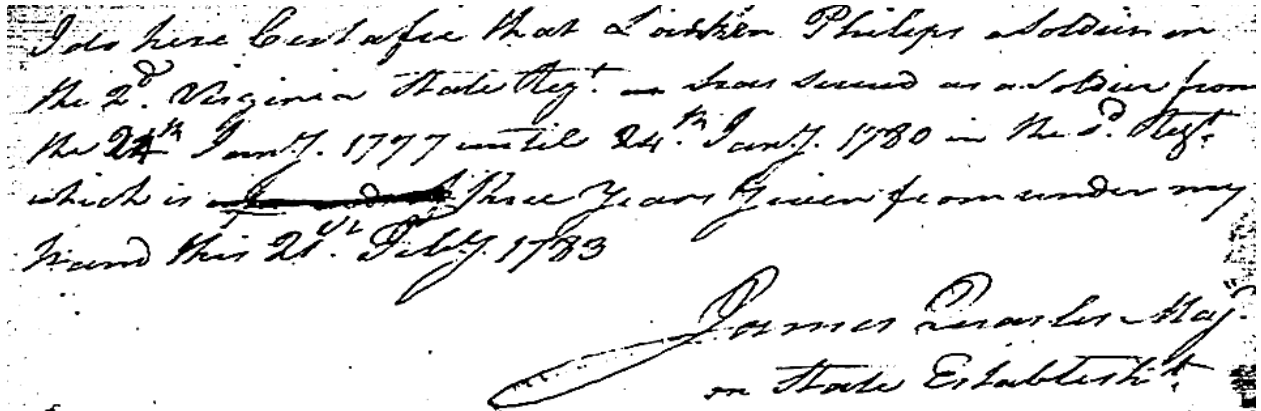 I do here Certafie that Lankin Philips a Soldier in
the 2d. Virginia State Regt. has served as a Soldier from
the 24th Janry. 1777 until 24.th Janry. 1780 in the sd. Regt.
which is three Years Given from under my
hand this 21st. Feby. 1783
James Quarles Maj.
on State Establisht.